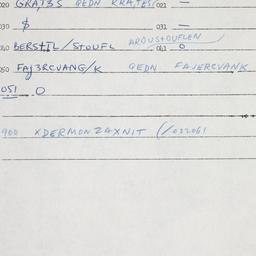 020 GRATIS GEDN KRATES/ 021 —
030 $ 031 —
040 BERSTIL/STOUFL AROUSTOUFLEN 041 0
050 FAJ3RCVANG/K GEDN FAJERCVANK
051 0
900 XDERMONZAXNIT (/032061